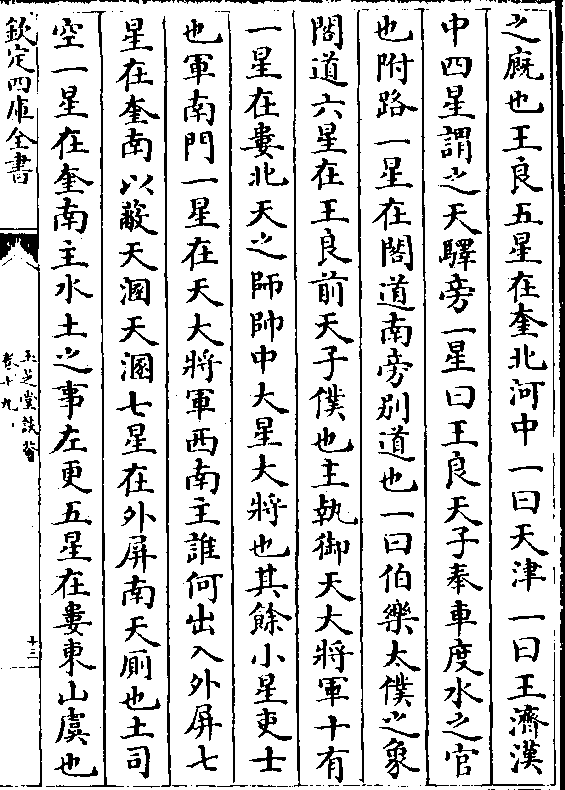 之廐也王良五星在奎北河中一曰天津一曰王濟漢
中四星謂之天驛旁一星曰王良天子奉車度水之官
也附路一星在閣道南旁别道也一曰伯樂太僕之象
閣道六星在王良前天子僕也主執御天大將軍十有
一星在婁北天之師帥中大星大將也其餘小星吏士
也軍南門一星在天大將軍西南主誰何出入外屏七
星在奎南以蔽天溷天溷七星在外屏南天厠也土司
空一星在奎南主水土之事左更五星在婁東山虞也
欽定四庫全書
玉芝堂談薈
卷十九
十三